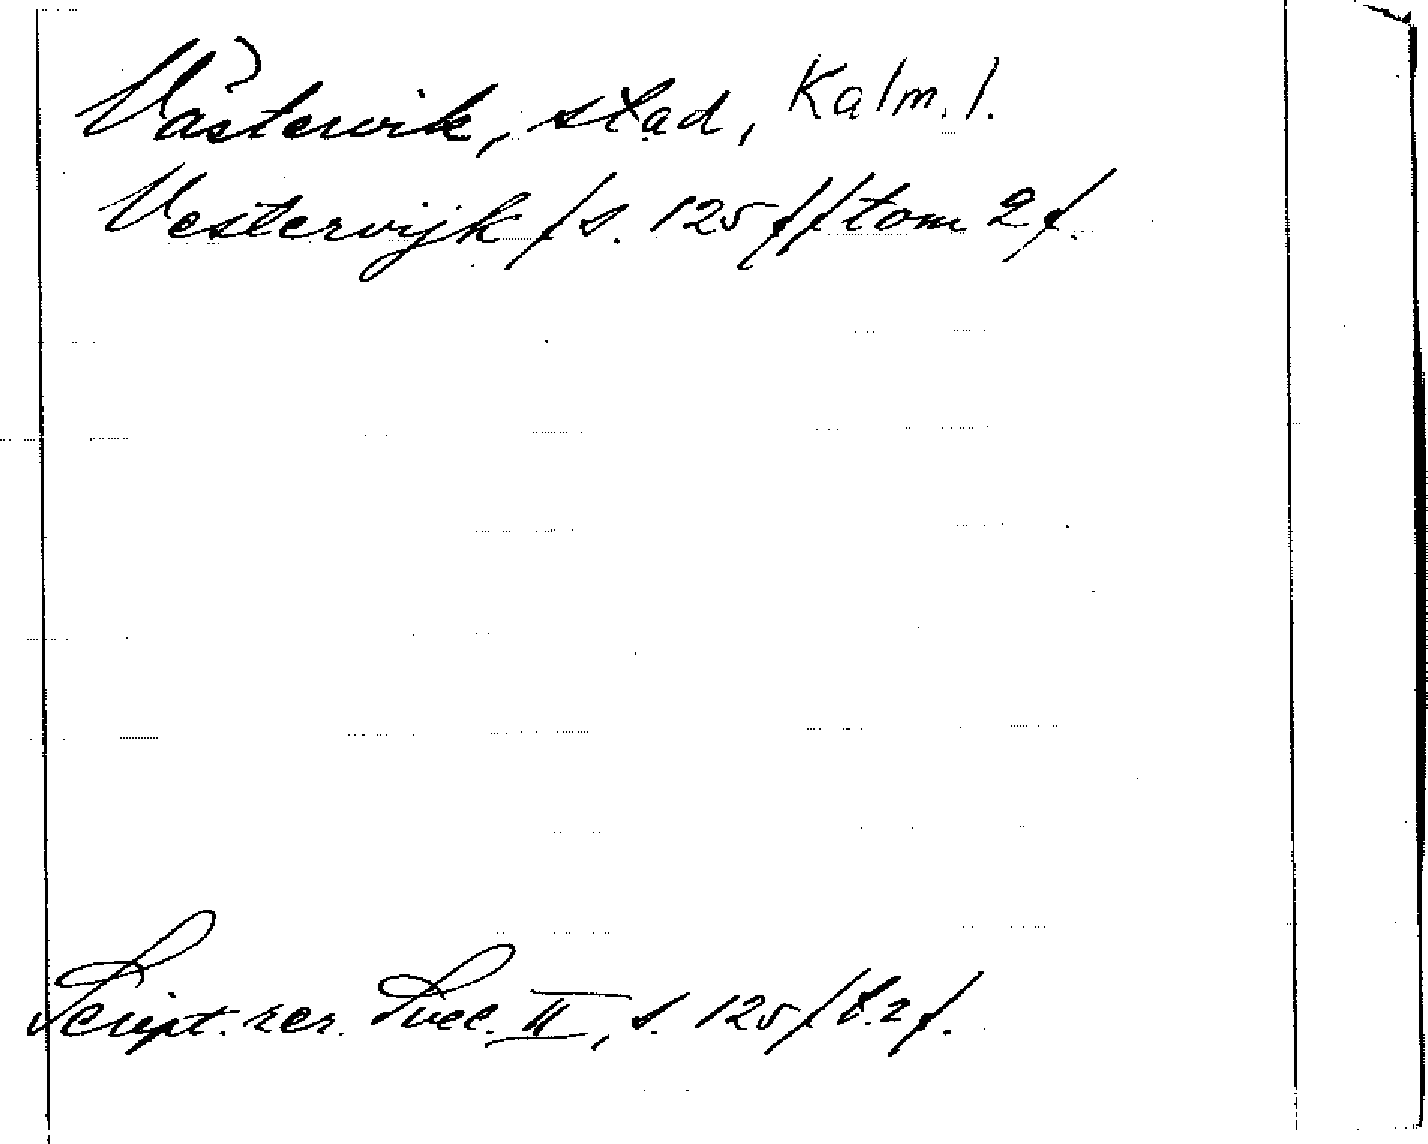 Västervik, stad, Kalm. l.
Vestervijk /s. 125/ /tom 2/.
Script. rer. Svec. II, s. 125 /b. 2/.